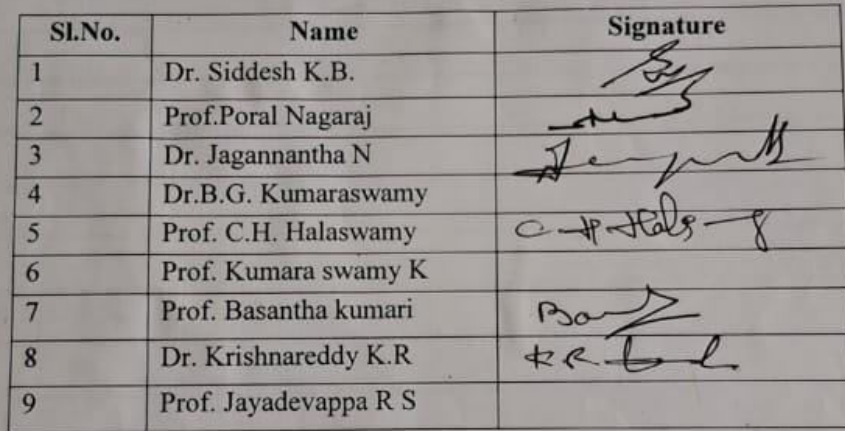 Sl.No. Name Signature
1 Dr. Siddesh K.B.
2 Prof.Poral Nagaraj
3 Dr. Jagannantha N
4 Dr.B.G. Kumaraswamy
5 Prof. C.H. Halaswamy C H Hals
6 Prof. Kumara swamy K
7 Prof. Basantha kumari
8 Dr. Krishnareddy K.R K R
9 Prof. Jayadevappa R S